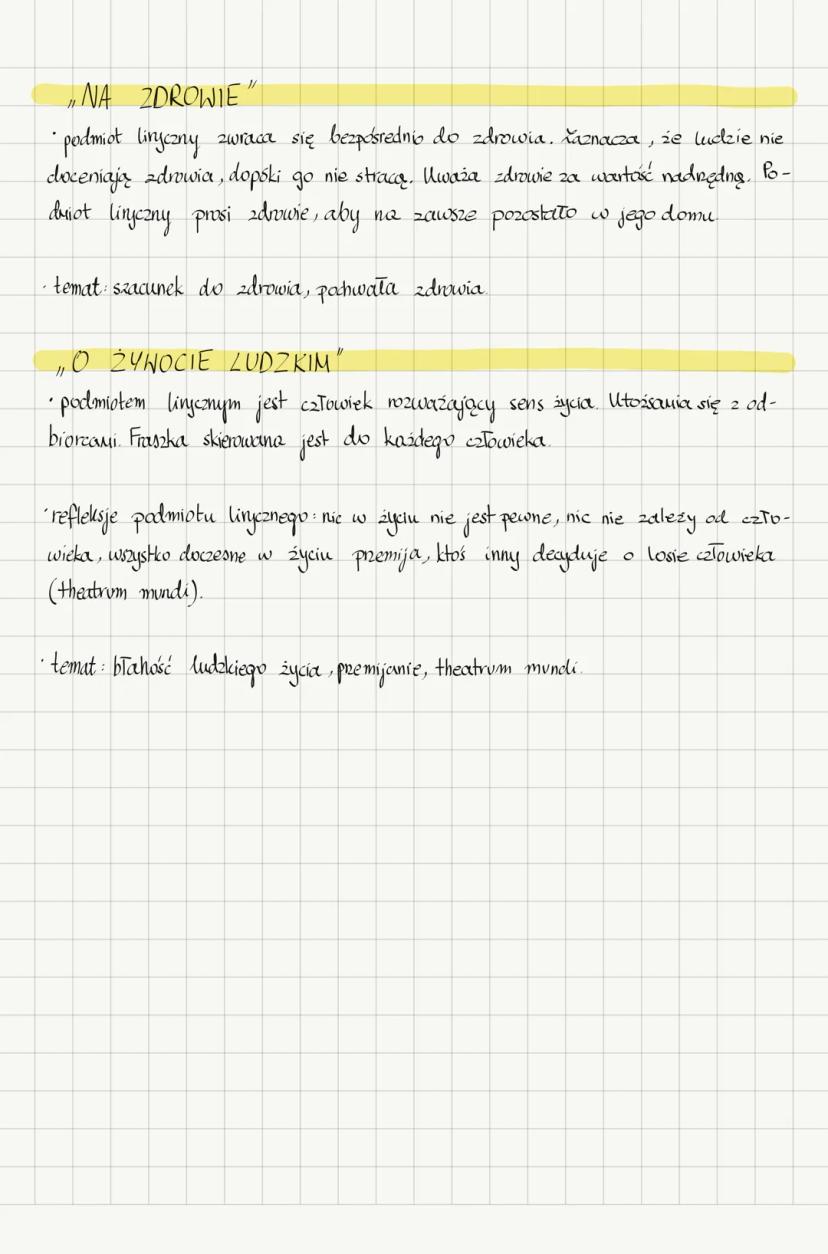 „NA ZDROWIE"
· podmiot liryczny zwraca się bezpośrednio do zdrowia. Zaznacza, że ludzie nie
doceniają zdrowia, dopóki go nie stracą. Uważa zdrowie za wartość nadrzędną. Po-
dmiot liryczny prosi zdrowie, aby na zawsze pozostało w jego domu.
· temat: szacunek do zdrowia, pochwała zdrowia.
„O ŻYWOCIE LUDZKIM"
· podmiotem lirycznym jest człowiek rozważający sens życia. Utożsamia się z od-
biorcami. Fraszka skierowana jest do każdego człowieka.
· refleksje podmiotu lirycznego: nic w życiu nie jest pewne, nic nie zależy od czło-
wieka, wszystko doczesne w życiu przemija, ktoś inny decyduje o losie człowieka
(theatrum mundi).
· temat: błahość ludzkiego życia, przemijanie, theatrum mundi.